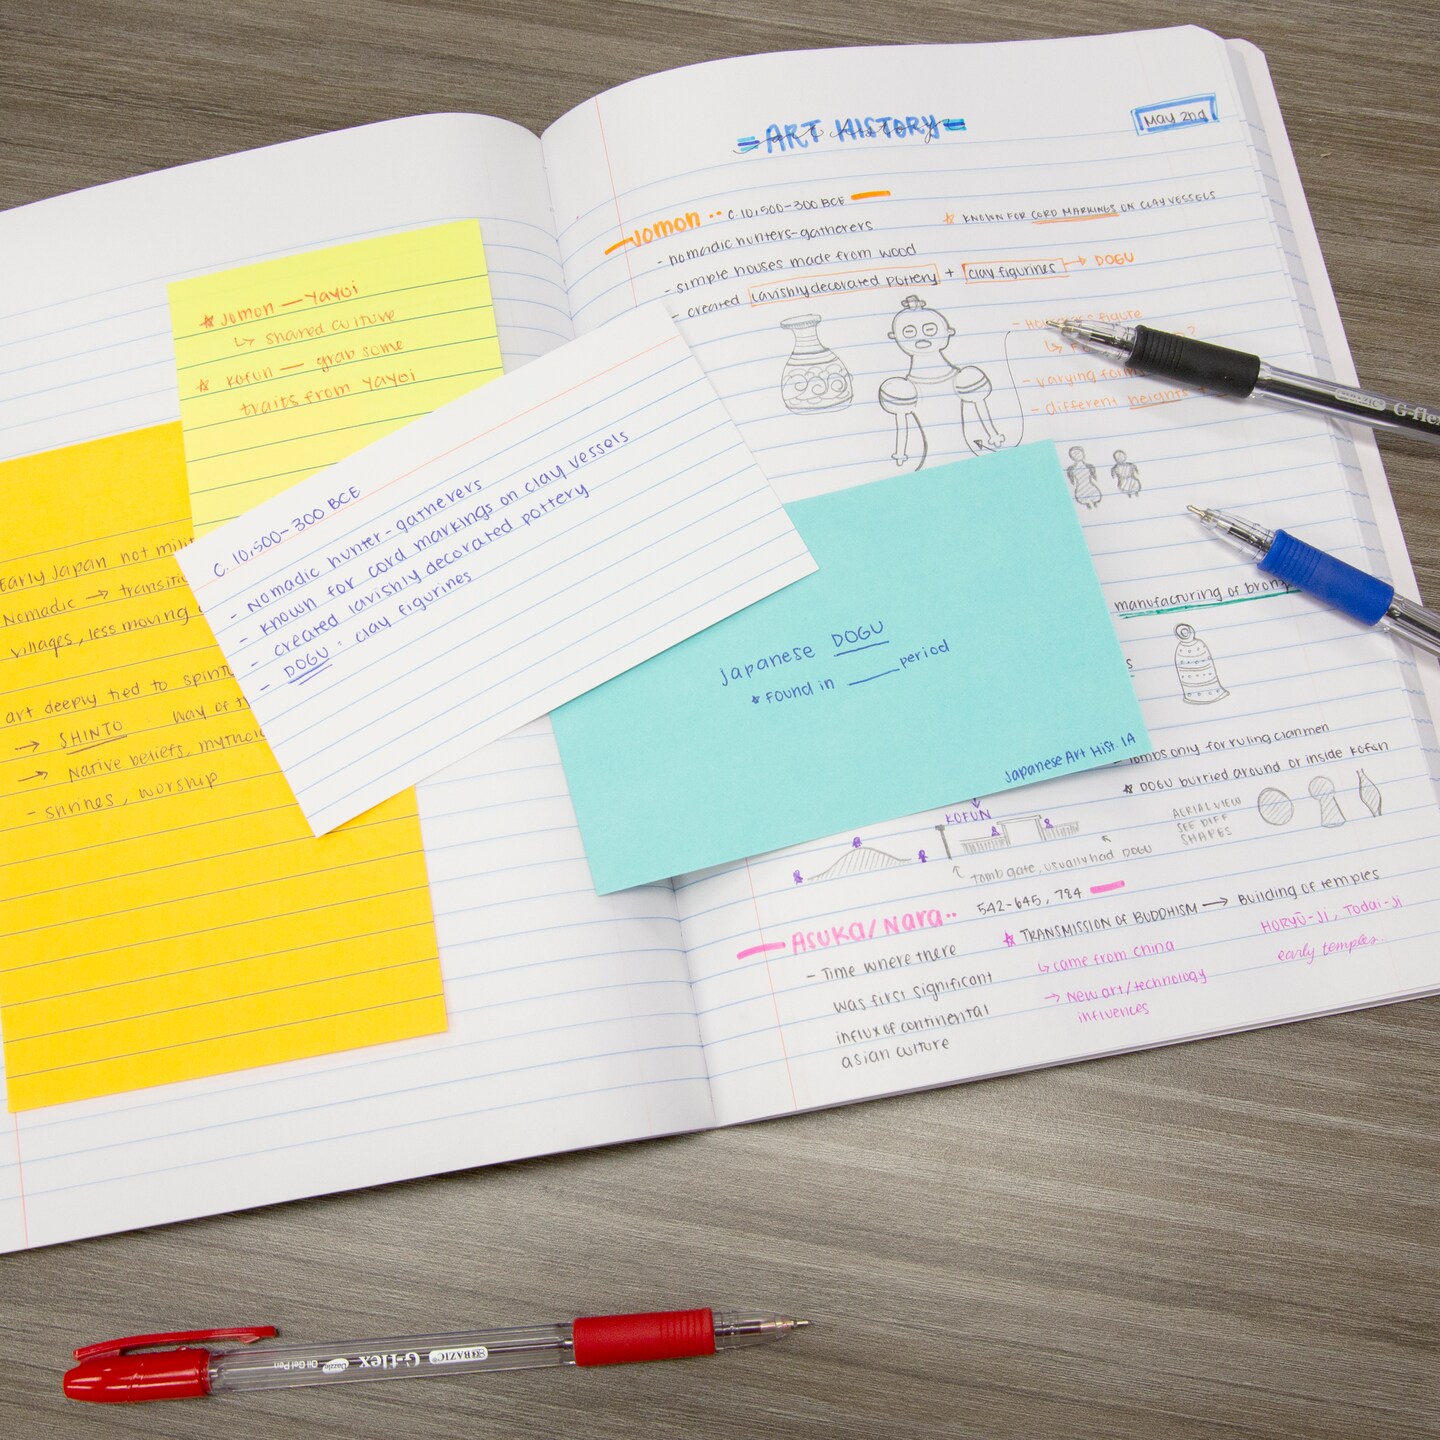 ART HISTORY
art history
May 2nd
Jomon ·· C. 10,500-300 BCE
- nomadic hunters-gatherers
☆ KNOWN FOR CORD MARKINGS ON CLAY VESSELS
- simple houses made from wood
- created lavishly decorated pottery + clay figurines → DOGU
figure
- varying
- different heights
manufacturing of
tombs only for ruling clanmen
☆ DOGU burried around or inside Kofun
AERIAL VIEW
SEE DIFF
SHAPES
KOFUN
tomb gate, usually had DOGU
ASUKA/NARA·· 542-645, 784
- Time where there
was first significant
influx of continental
asian culture
☆ TRANSMISSION OF BUDDHISM → Building of temples
↳ came from china
→ New art/technology
influences
HORYŪ-JI, Todai-Ji
early temples.
☆ Jomon — Yayoi
↳ shared culture
☆ Kofun — grab some
traits from Yayoi
Early Japan not
Nomadic →
villages, less moving
art deeply tied to
→ SHINTO way of
→ Native beliefs,
- shrines, worship
C. 10,500-300 BCE
- Nomadic hunter-gatherers
- known for cord markings on clay vessels
- created lavishly decorated pottery
- DOGU: clay figurines
Japanese DOGU
☆ Found in ______ period
Japanese Art Hist. 1A
BAZIC® G-flex
BAZIC® G-flex Dazzle Oil Gel Pen